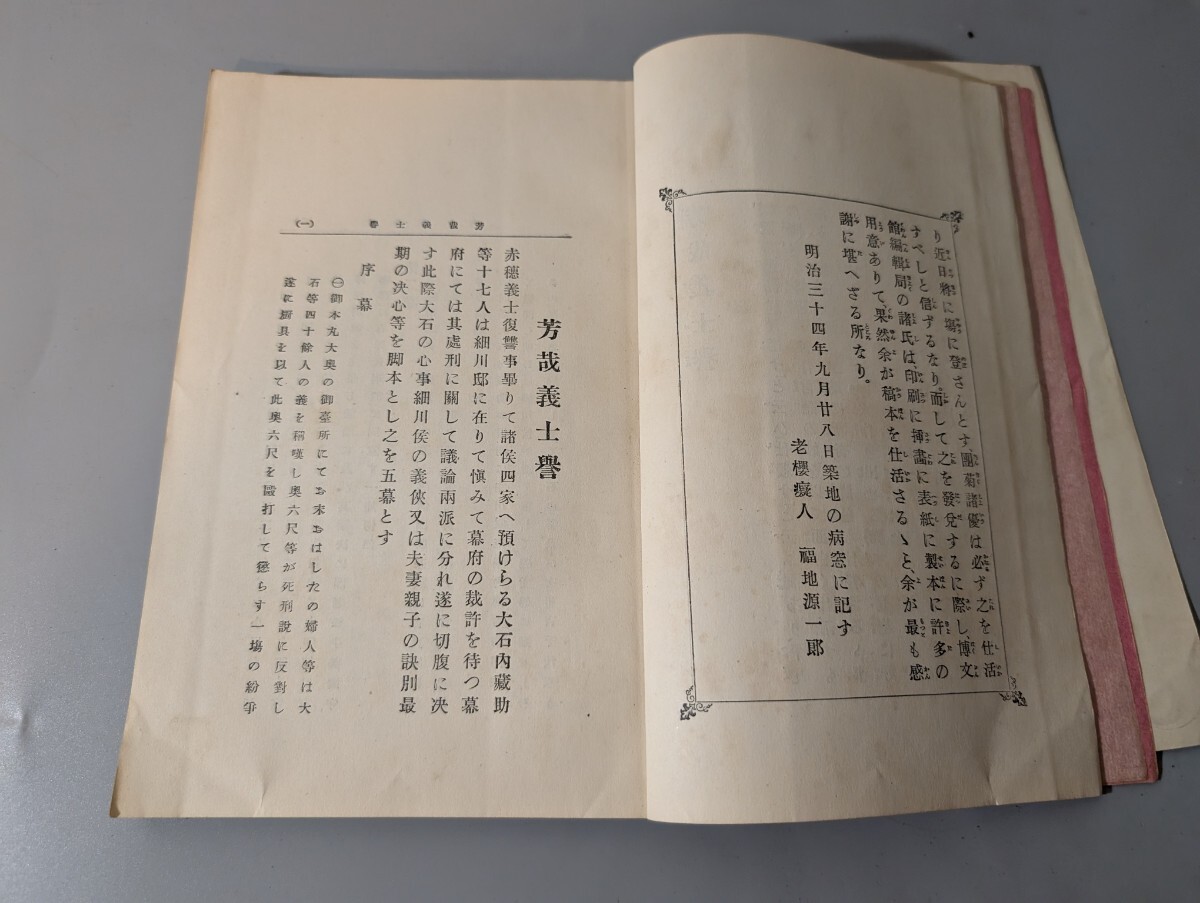 り近日將に場に登さんとす、團菊諸優は必ず之を仕活
すべしと信ずるなり而して之を發兌するに際し、博文
館編輯局の諸氏は、印刷に挿畵に表紙に製本に許多の
用意ありて、果然余が稿本を仕活さるゝと、余が最も感
謝に堪へざる所なり。
明治三十四年九月廿八日築地の病窓に記す
老櫻癡人 福地源一郎
芳哉義士譽
(一)
芳哉義士譽
赤穗義士復讐事畢りて諸侯四家へ預けらる大石內藏助
等十七人は細川邸に在りて愼みて幕府の裁許を待つ幕
府にては其處刑に關して議論兩派に分れ遂に切腹に决
す此際大石の心事細川侯の義俠又は夫妻親子の訣別最
期の决心等を脚本とし之を五幕とす
序幕
㊀御本丸大奧の御臺所にてお末おはしたの婦人等は大
石等四十餘人の義を稱嘆し奧六尺等が死刑說に反對し
遂に厨具を以て此奧六尺を毆打して懲らす一塲の紛爭